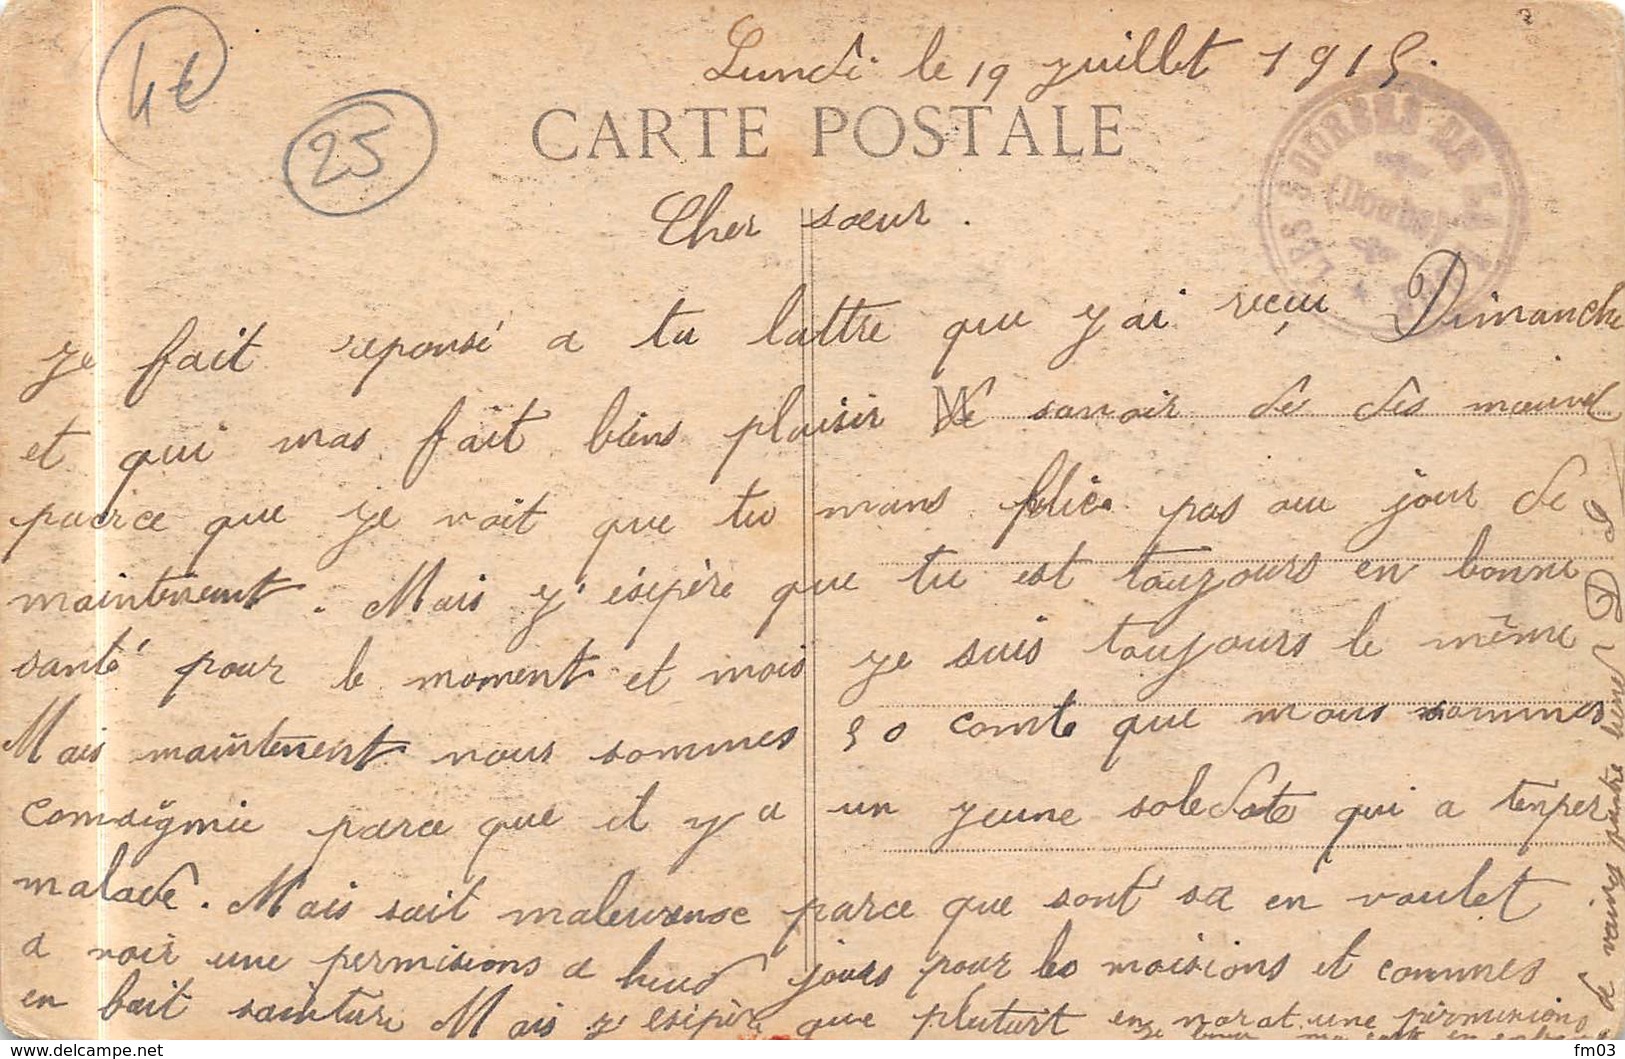 4€
25
Lundi le 19 juillet 1915.
CARTE POSTALE
LES SOURCES DE LA
(Doubs)
Cher sœur.
Je fait reponsé a tu lattre que y ai reçu Dimanche
et qui mas fait biens plaisir de savoir de dés nouvel
paerce que je voit que tu mans plie pas au jour de
maintenent. Mais y' ésipére que tu est toujours en bonne
santé pour le moment et mois je suis toujours le même
Mais maintenent nous sommes 50 comte que nous sommes
consignie parce que il y a un jeune soledate qui a tenper
malade. Mais sait maleureuse parce que sont sa en voulet
a voir une permisions a huid jours pour les moisions et commes
en bait sainture Mais y' esipère que plutart en norat une permisions
fm03